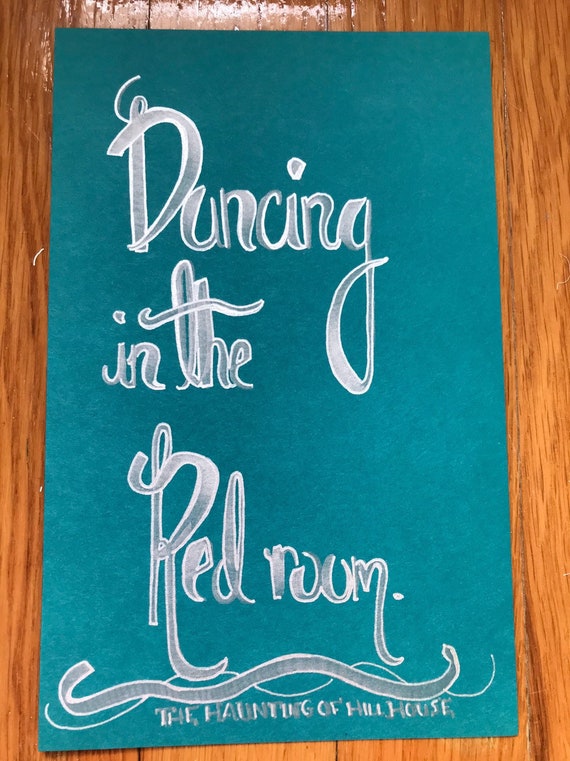 Dancing
in the
Red room.
THE HAUNTING OF HILL HOUSE